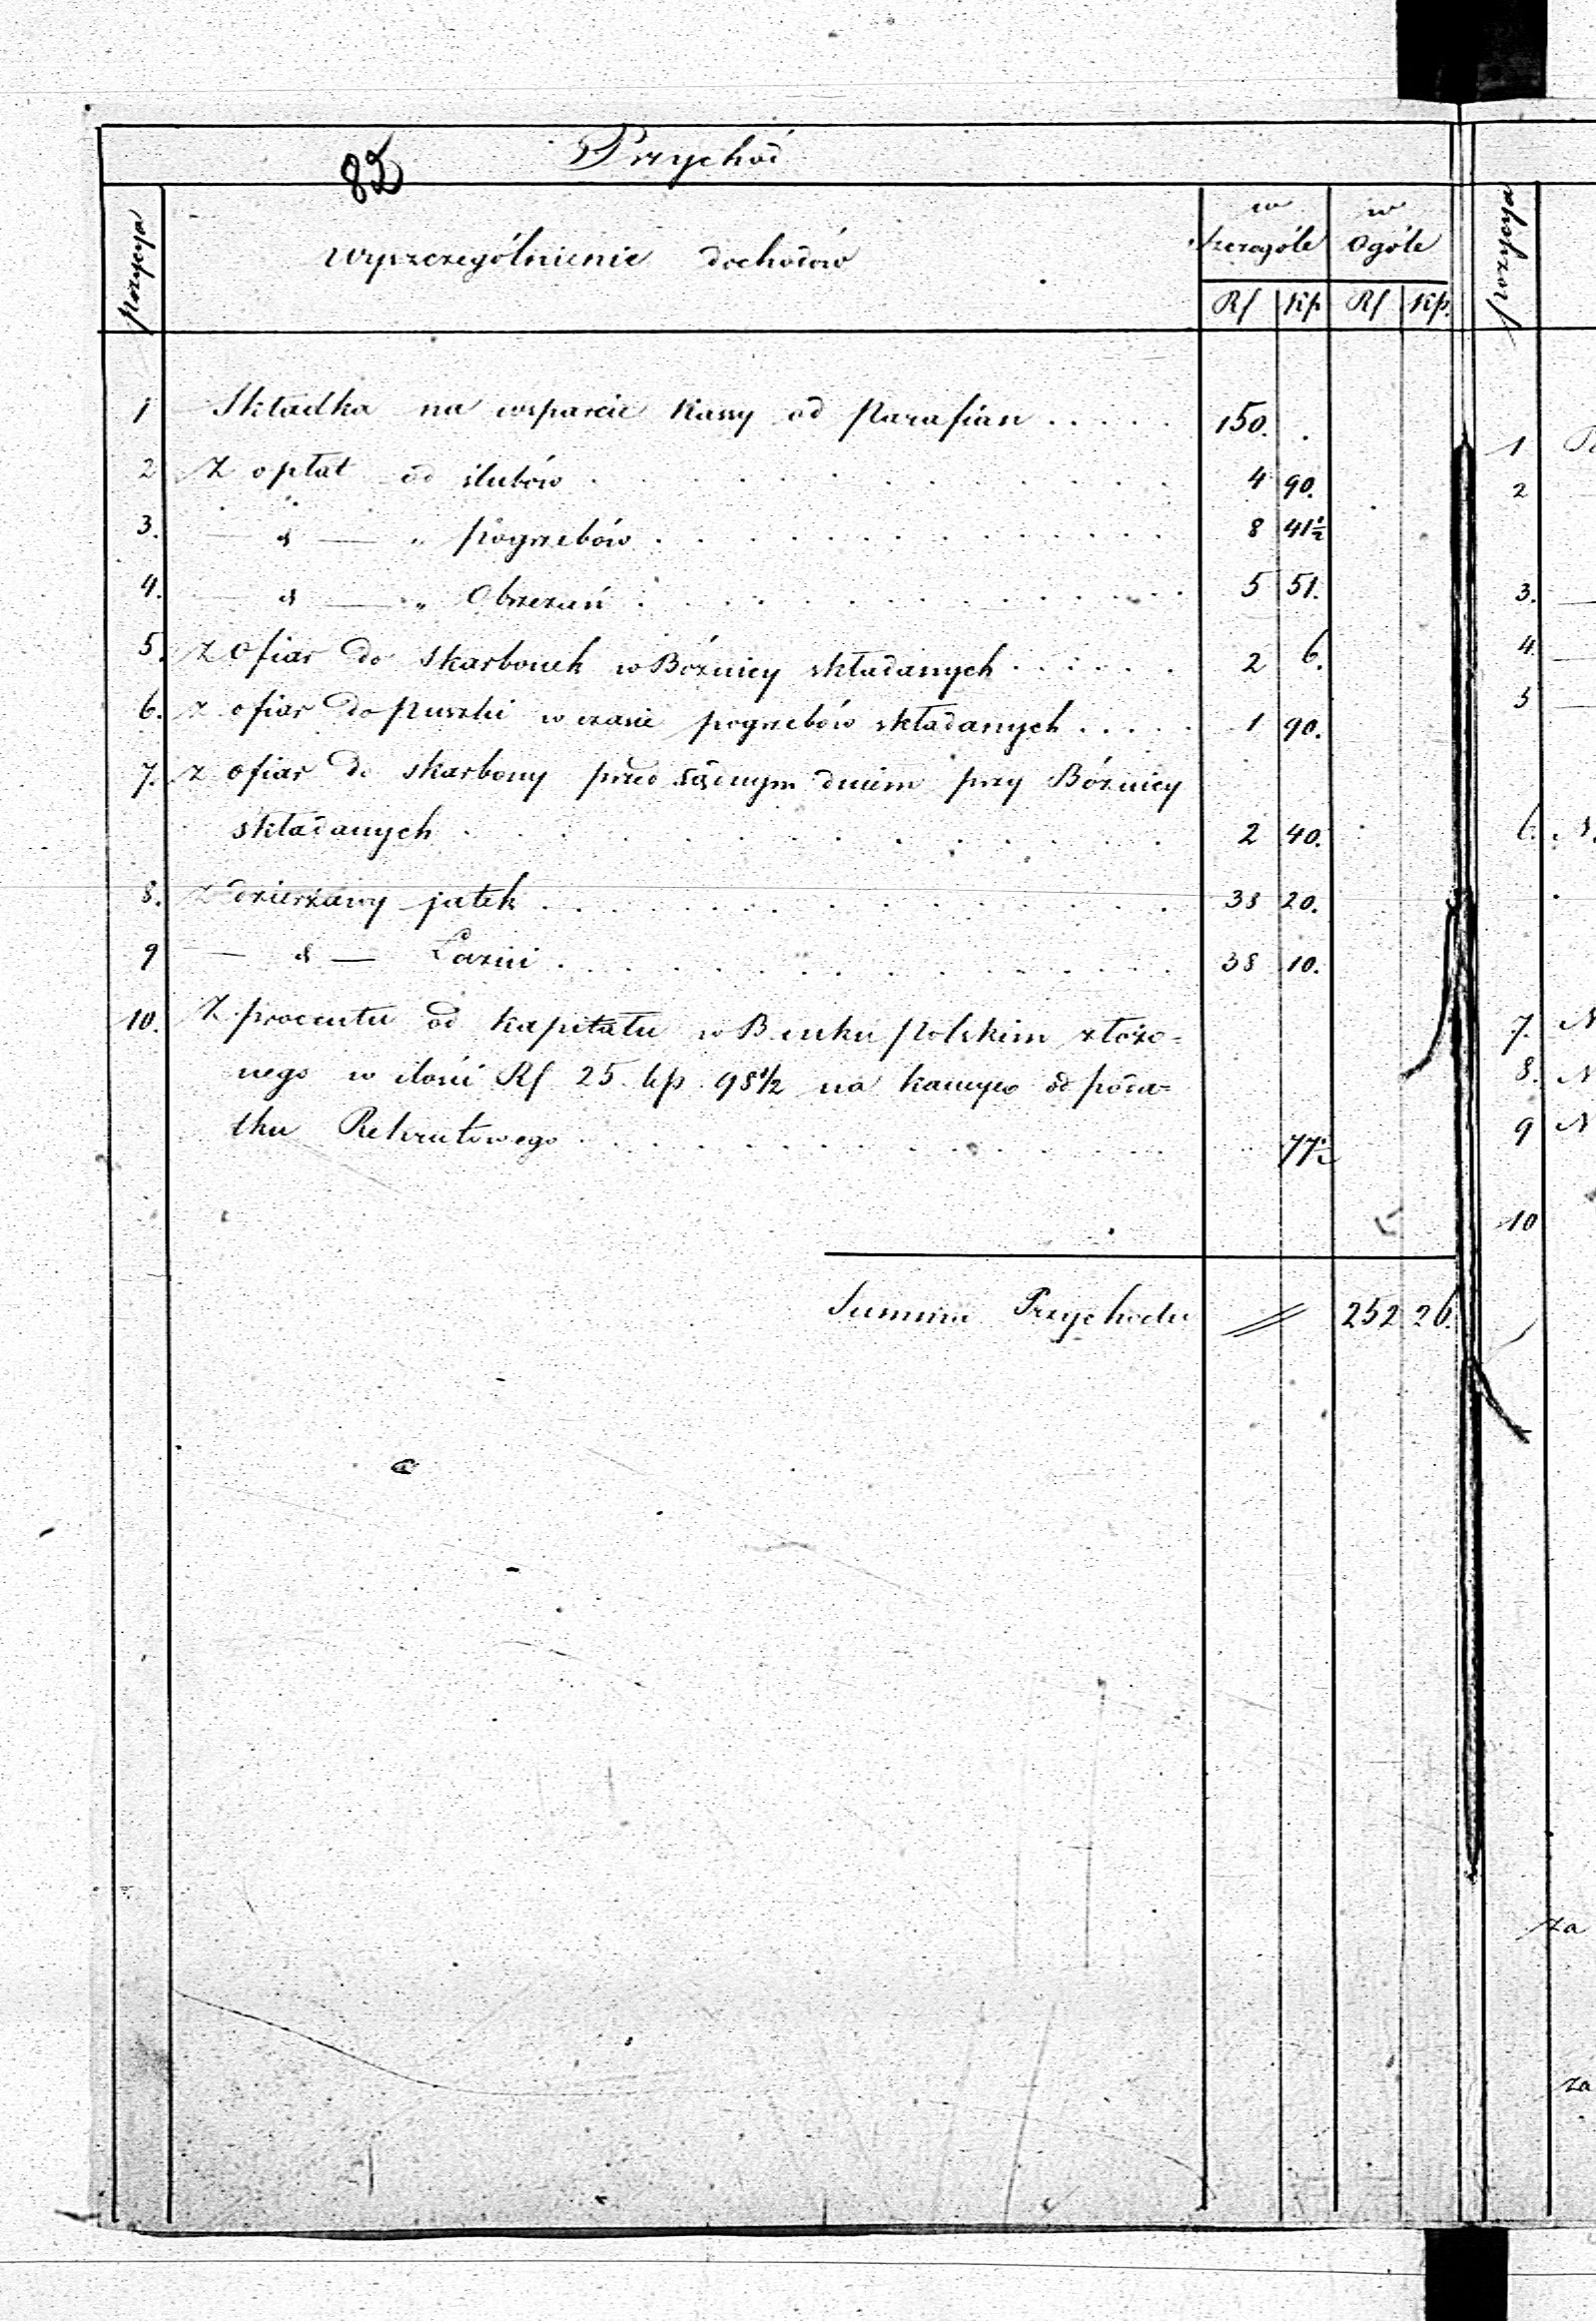 82
Przychód
pozycya
Wyszczególnienie dochodów
w Szczególe
w Ogóle
Rs kp Rs kp.
pozycya
1 Składka na wsparcie Kassy od Parafian . . . . . 150. .
2 Z opłat od ślubów . . . . . 4 90.
3. — d — „ pogrzebów . . . . . 8 41½
4. — d — „ Obrzezań . . . . . 5 51.
5. z ofiar do skarbonek w Bóżnicy składanych . . . . . 2 6.
6. z ofiar do puszki w czasie pogrzebów składanych . . . . . 1 90.
7. z ofiar do skarbony przed sądnym dniem przy Bóżnicy
składanych . . . . . 2 40.
8. z dzierżawy jatek . . . . . 38 20.
9 — d — Łaźni . . . . . 38 10.
10. Z procentu od kapitału w Banku Polskim złożo=
nego w ilości Rs 25 kp 98½ na kaucyo od
tku Rekrutowego . . . . . 77½
Summa Przychodu 252 26.
1
2
3.
4.
5
6.
7. N
8. N
9 N
10
za
za